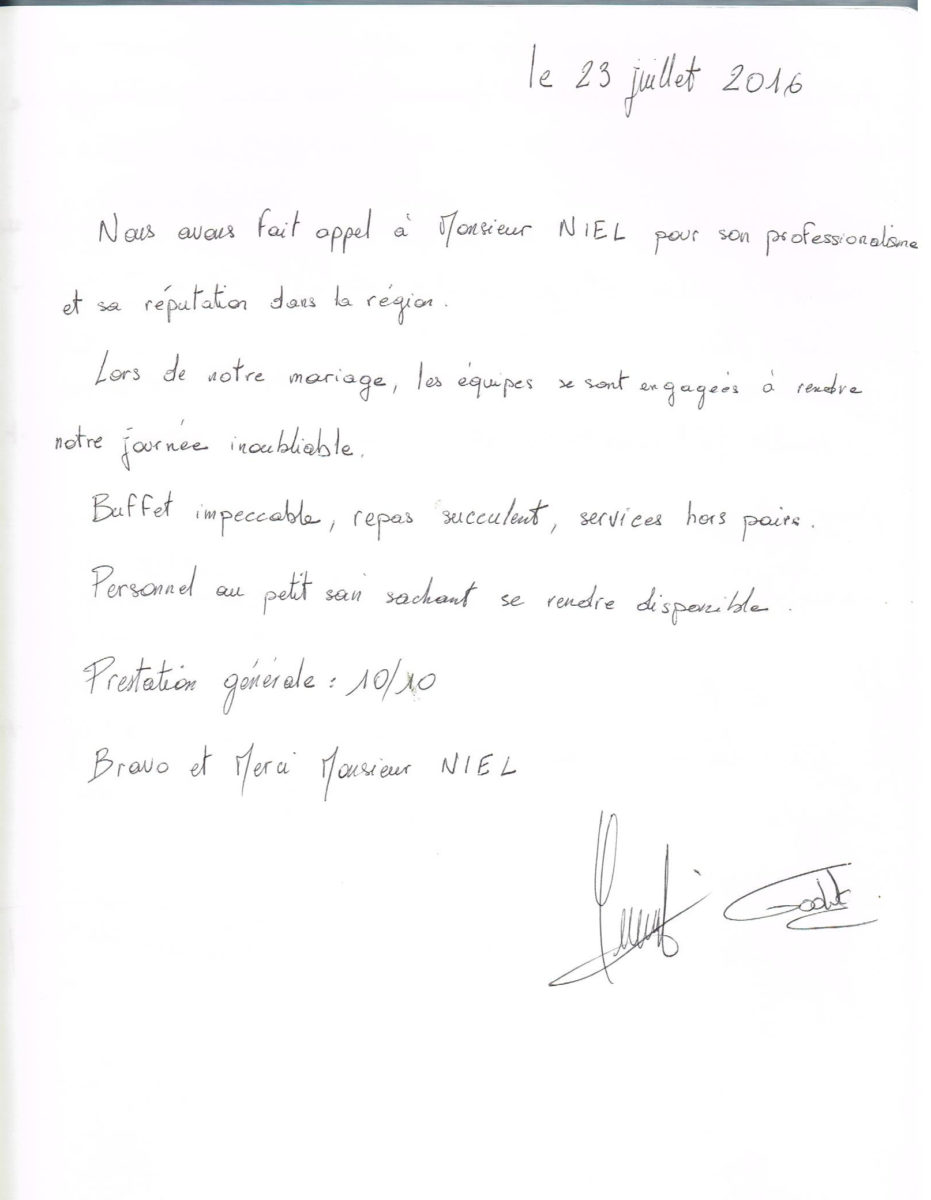 le 23 juillet 2016
Nous avons fait appel à Monsieur NIEL pour son professionalisme
et sa réputation dans la région.
Lors de notre mariage, les équipes se sont engagées à rendre
notre journée inoubliable.
Buffet impeccable, repas succulent, services hors pairs.
Personnel au petit soin sachant se rendre disponible.
Prestation générale : 10/10
Bravo et Merci Monsieur NIEL